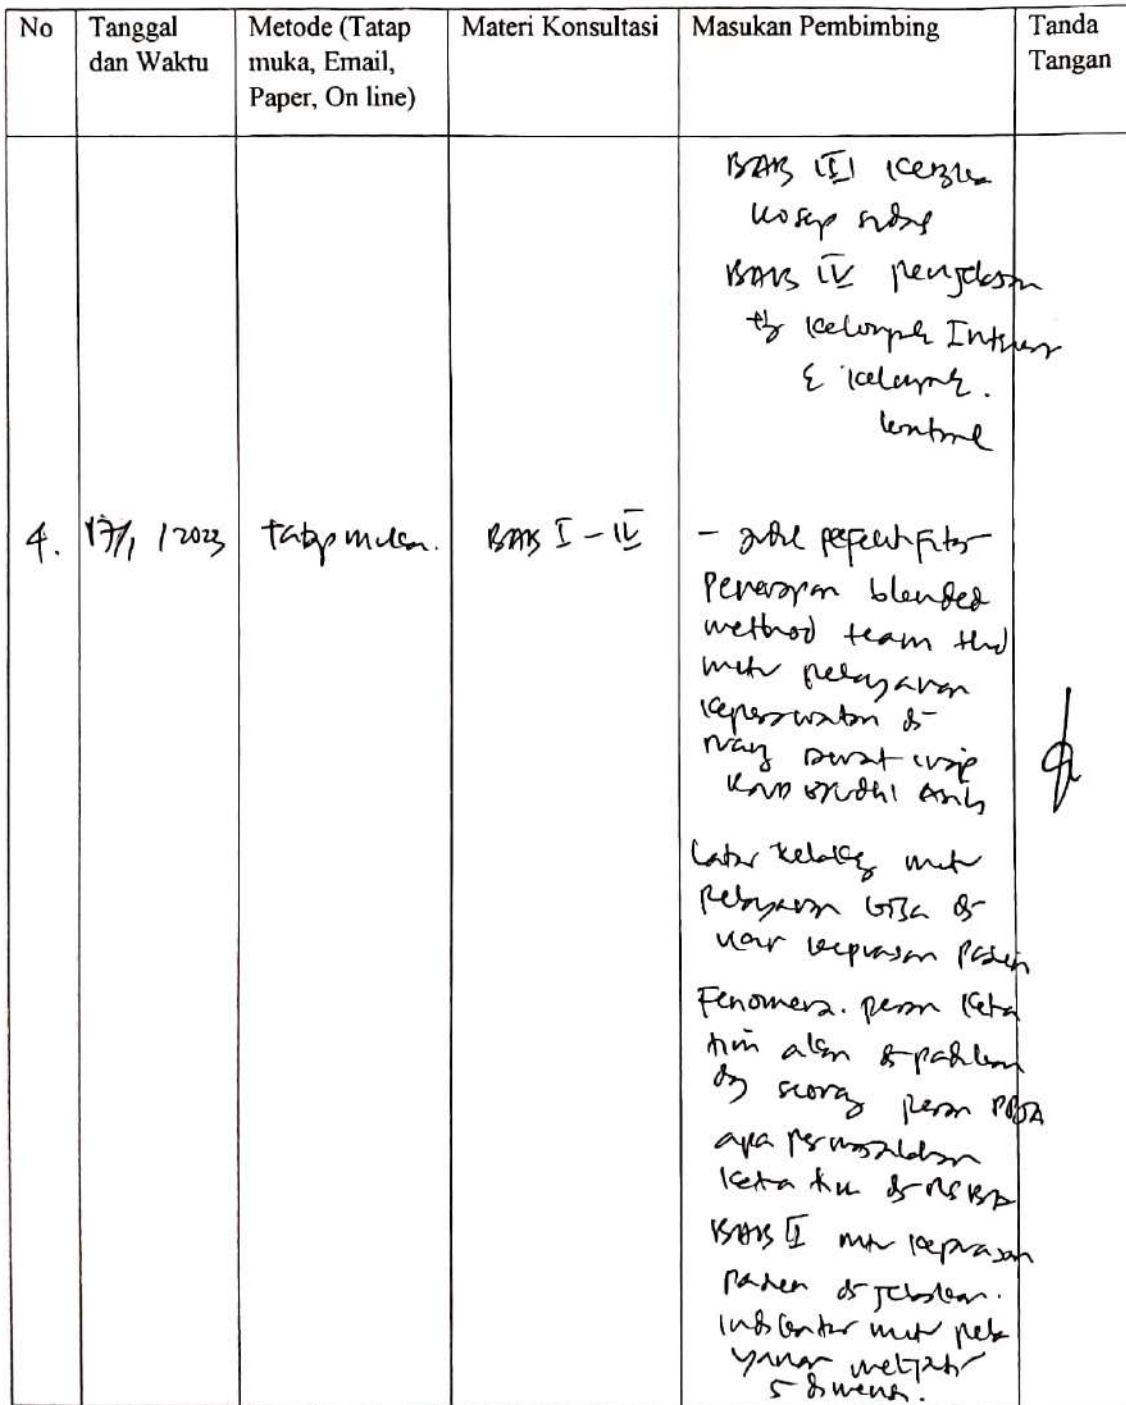 No
Tanggal
dan Waktu
Metode (Tatap
muka, Email,
Paper, On line)
Materi Konsultasi
Masukan Pembimbing
Tanda
Tangan
BAB III
BAB IV penjelasan
ttg kelompok
& kelompok.
kontrol
4.
17/1 /2023
tatap muka.
BAB I - IV
-
Penerapan blended
method team thd
mutu pelayanan
keperawatan di
ruang rawat inap
Budhi Asih
Latar belakang mutu
pelayanan bisa di
ukur kepuasan pasien
Fenomena. peran ketua
tim akan
dg seorang peran PPJA
apa permasalahan
ketua tim di RSBA
BAB II mutu kepuasan
pasien di jelaskan.
Indikator mutu pela
yanan meliputi
5 dimensi.